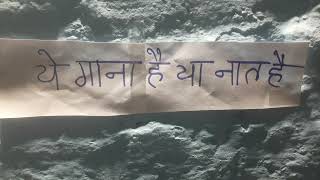 ये गाना है या नात है